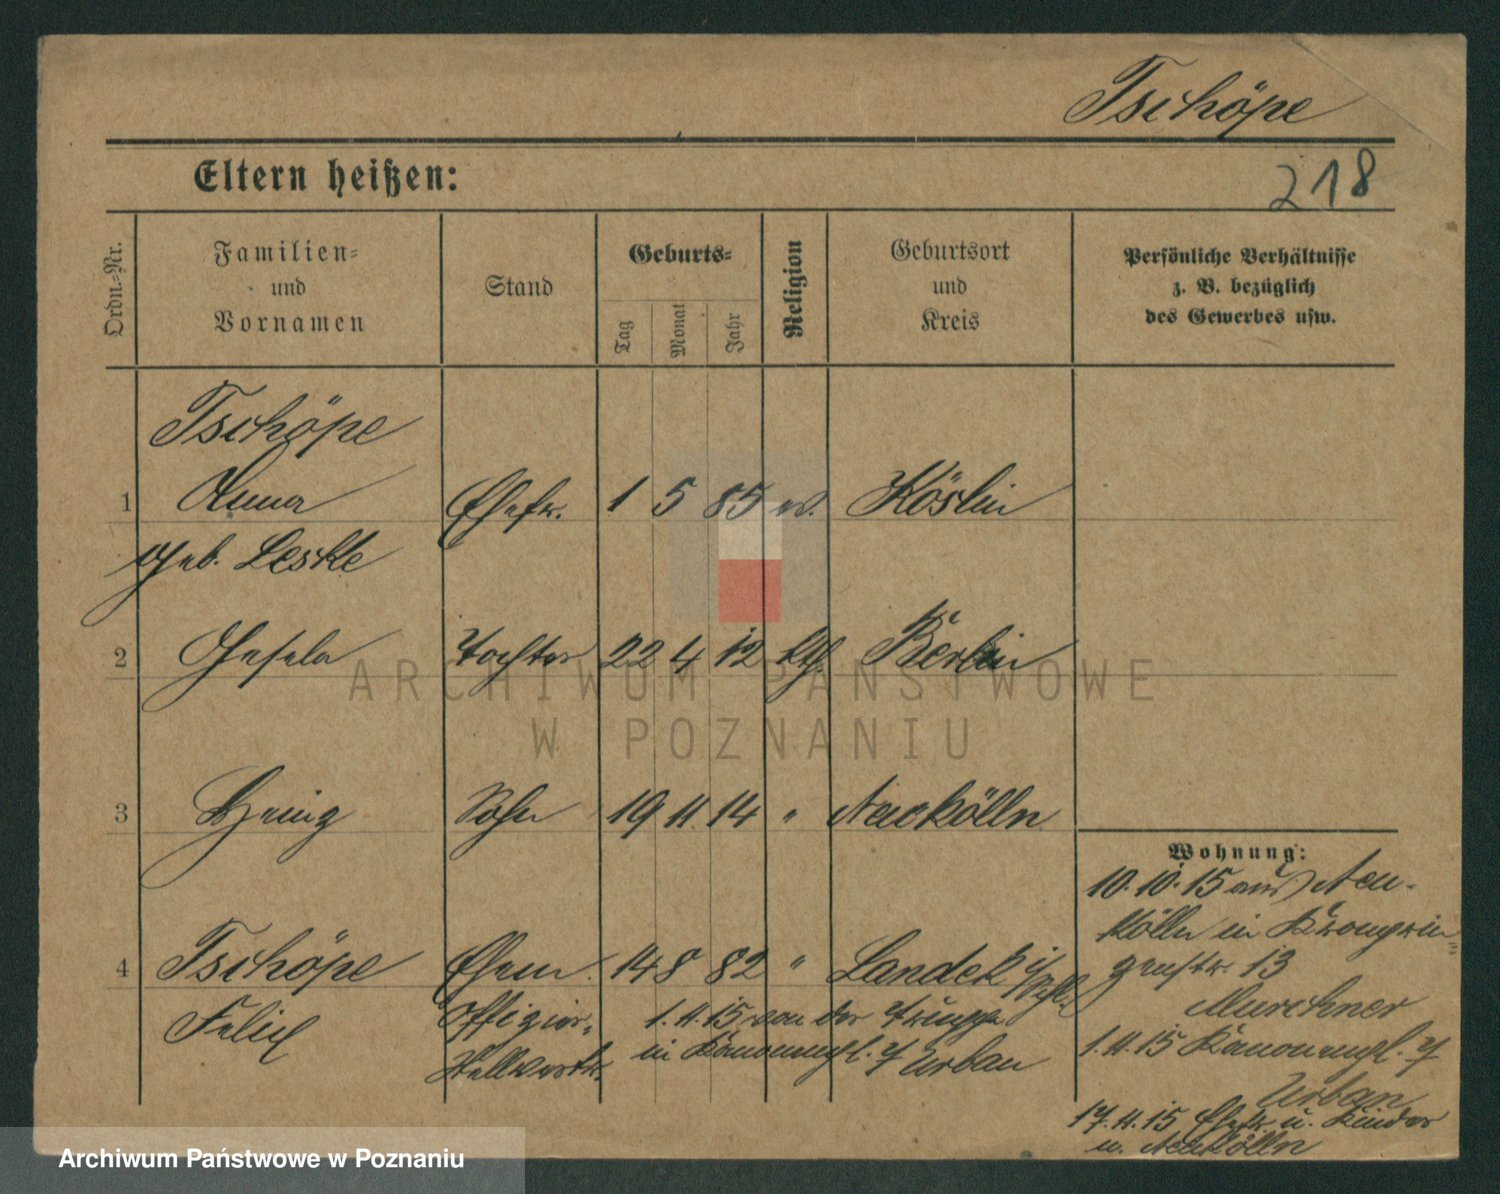 Tschöpe
Eltern heißen:
218
Ordn.-Nr.
Familien-
und
Vornamen
Stand
Geburts-
Tag
Monat
Jahr
Religion
Geburtsort
und
Kreis
Persönliche Verhältnisse
z. B. bezüglich
des Gewerbes usw.
Tschöpe
1 Anna Ehefr. 1 5 85 ev. Köslin
geb. Leske
2 Gesela Tochter 22 4 12 kth. Berlin
3 Heinz Sohn 19 11 14 " Neukölln
4 Tschöpe Ehem. 14 8 82 " Landek i/
Felix Offizier-
Stellvertr.
1.11.15 von der Truppe
in Kanonenpl. 4 Urban
Wohnung:
10.10.15 aus Neu-
kölln in Kronprin-
zenstr. 13
1.11.15 Kanonenpl. 4
Urban
17.11.15 Ehefr. u. Kinder
n. Neukölln
ARCHIWUM PAŃSTWOWE
W POZNANIU
Archiwum Państwowe w Poznaniu